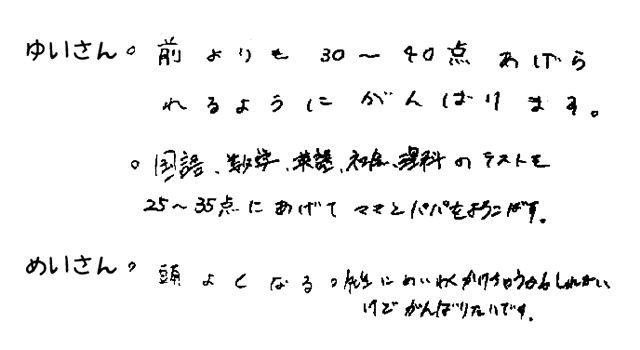 ゆいさん。前よりも30〜40点あげら
れるようにがんばります。
。国語、数学、英語、社会、理科のテストを
25〜35点にあげてママとパパをよろこばす。
めいさん。頭よくなる。先生にめいわくかけちゃうかもしれない
けどがんばりたいです。